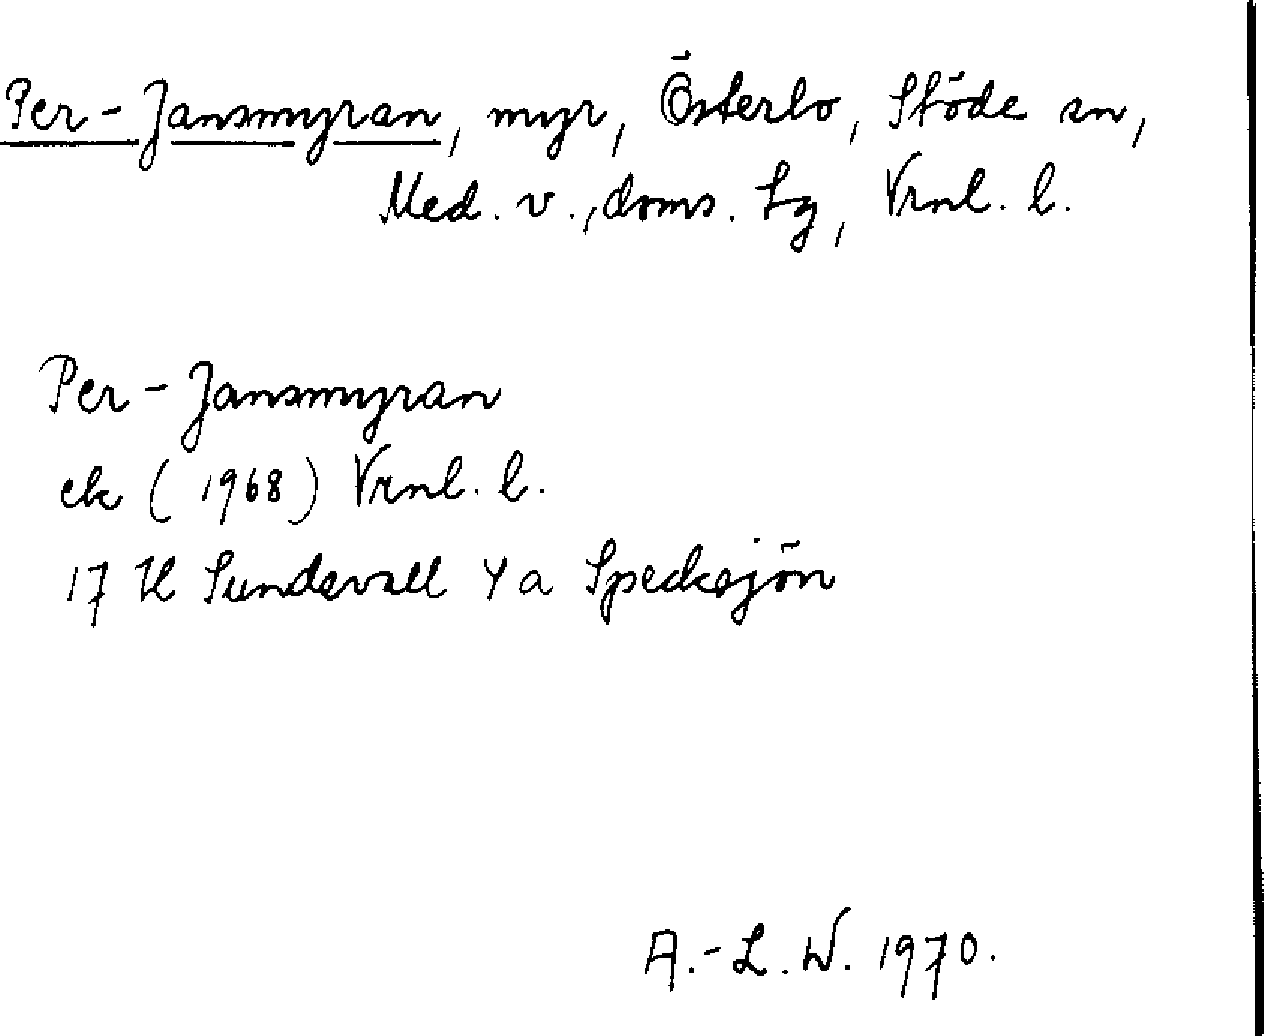 Per-Jansmyran, myr, Österlo, Stöde sn,
Med. v., doms. Lg, Vrnl. l.
Per-Jansmyran
ek (1968) Vrnl. l.
17 H Sundsvall 4 a Specksjön
A.-L.W. 1970.